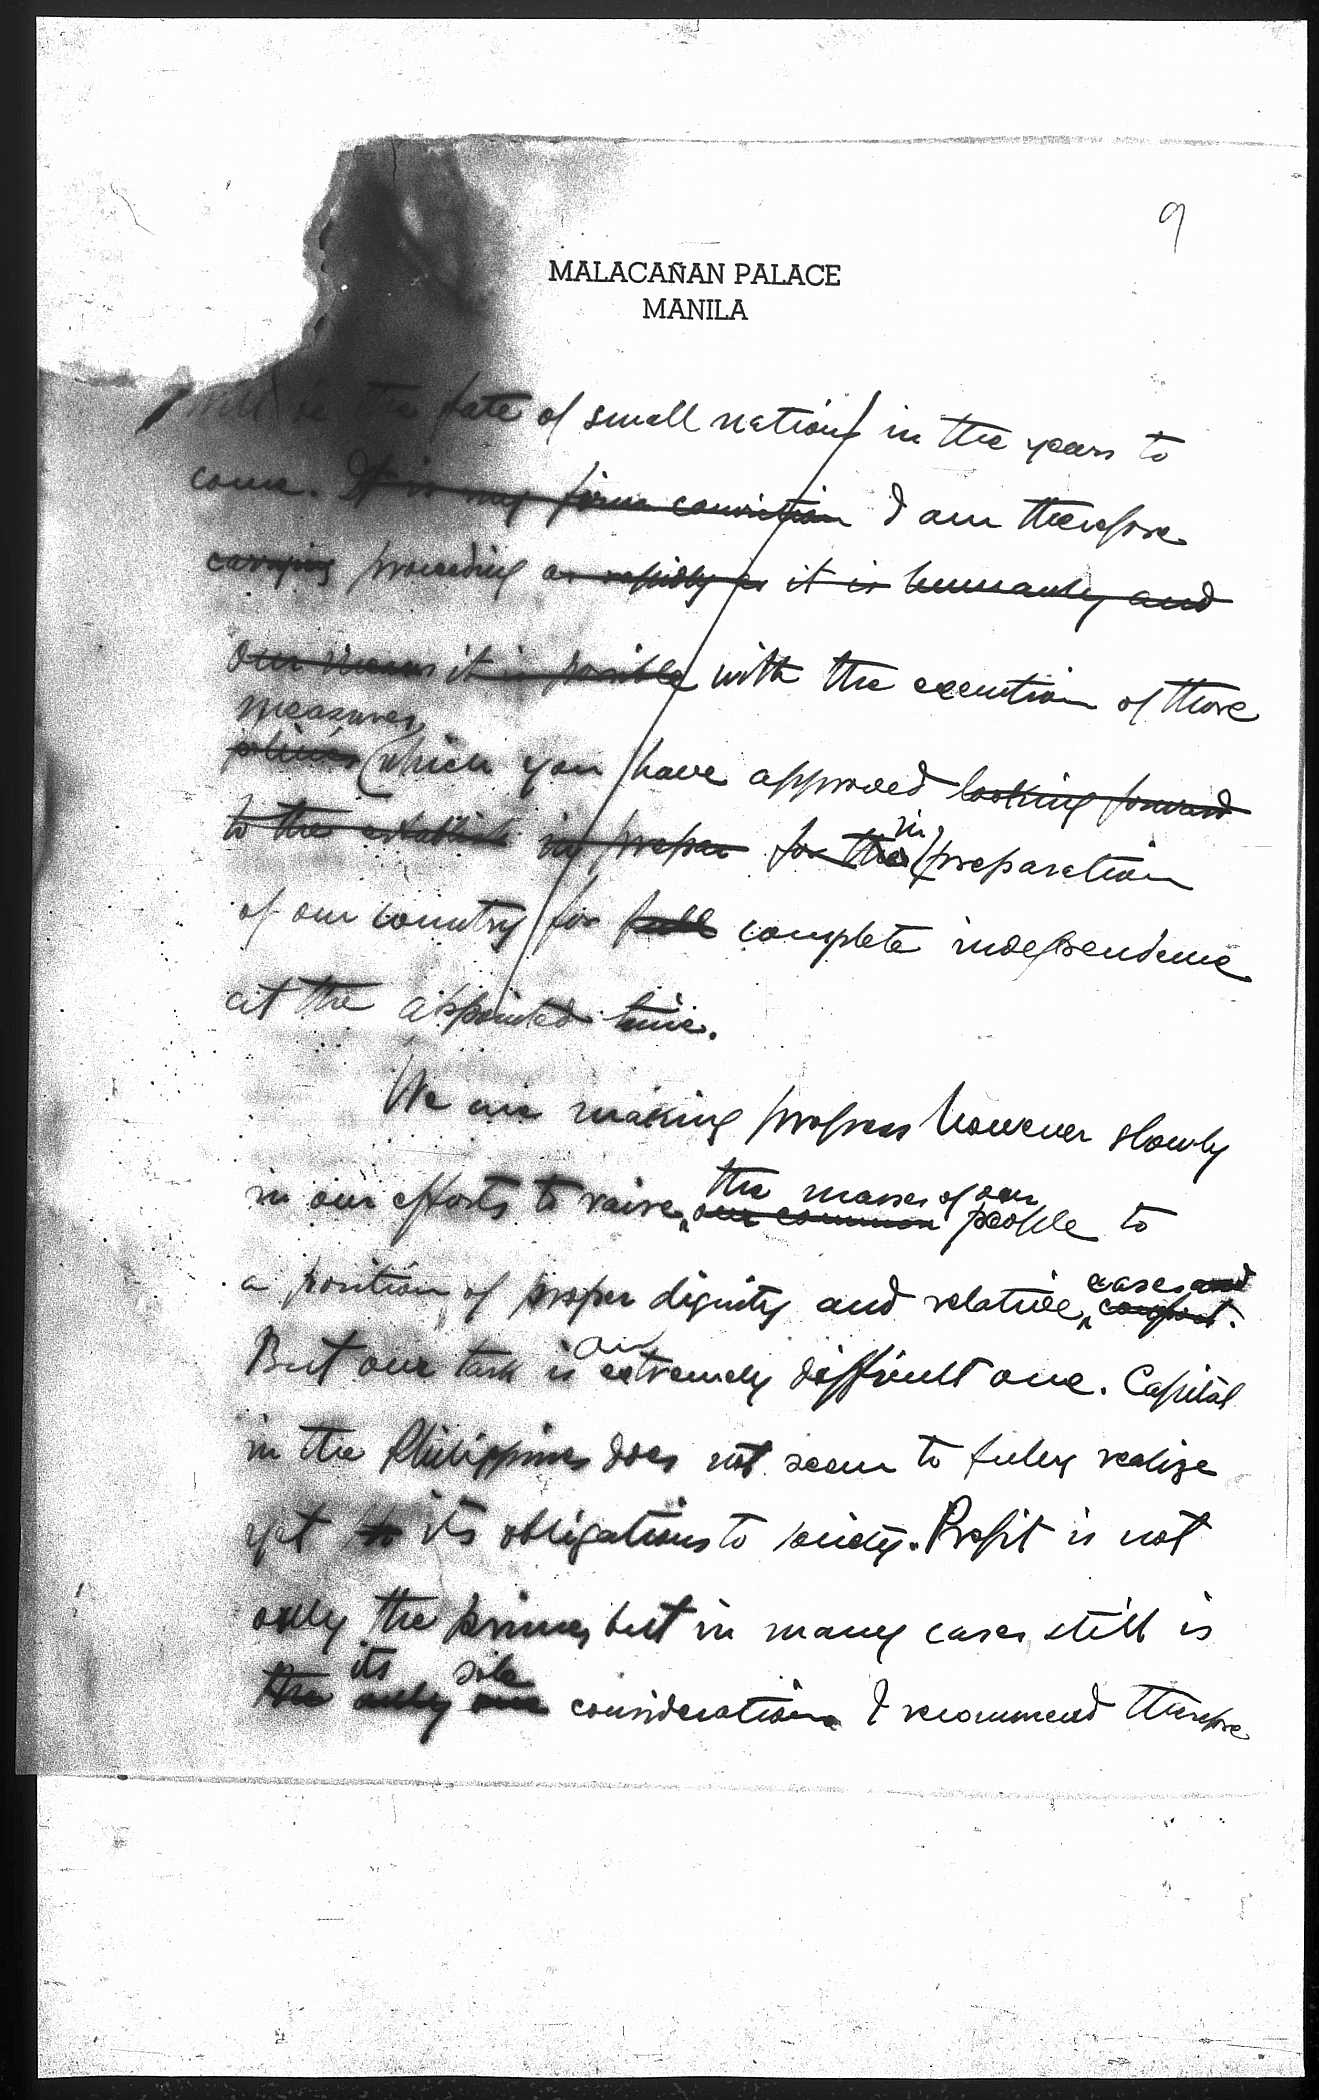 9
MALACAÑAN PALACE
MANILA
will be the fate of small nations in the years to
come. It is my firm conviction I am therefore
carrying proceeding as rapidly as it is humanly and
our means it is possible with the execution of those
measures
policies which you have approved looking forward
to the establish in prepar for the in preparation
of our country for full complete independence
at the appointed time.
We are making progress however slowly
the masses of our
in our efforts to raise our common people to
ease and
a position of proper dignity and relative comfort.
an
But our task is extremely difficult one. Capital
in the Philippines does not seem to fully realize
yet to its obligations to society. Profit is not
only the prime, but in many cases still is
its sole
the only one consideration I recommend therefore